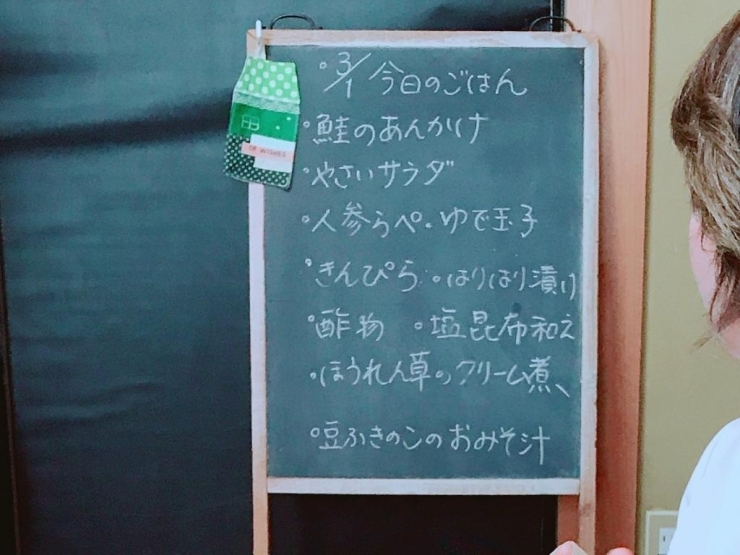 °3/1 今日のごはん
・鮭のあんかけ
・やさいサラダ
・人参らぺ・ゆで玉子
・きんぴら 。はりはり漬け
・酢物 。塩昆布和え
・ほうれん草のクリーム煮、
°豆ふきのこのおみそ汁